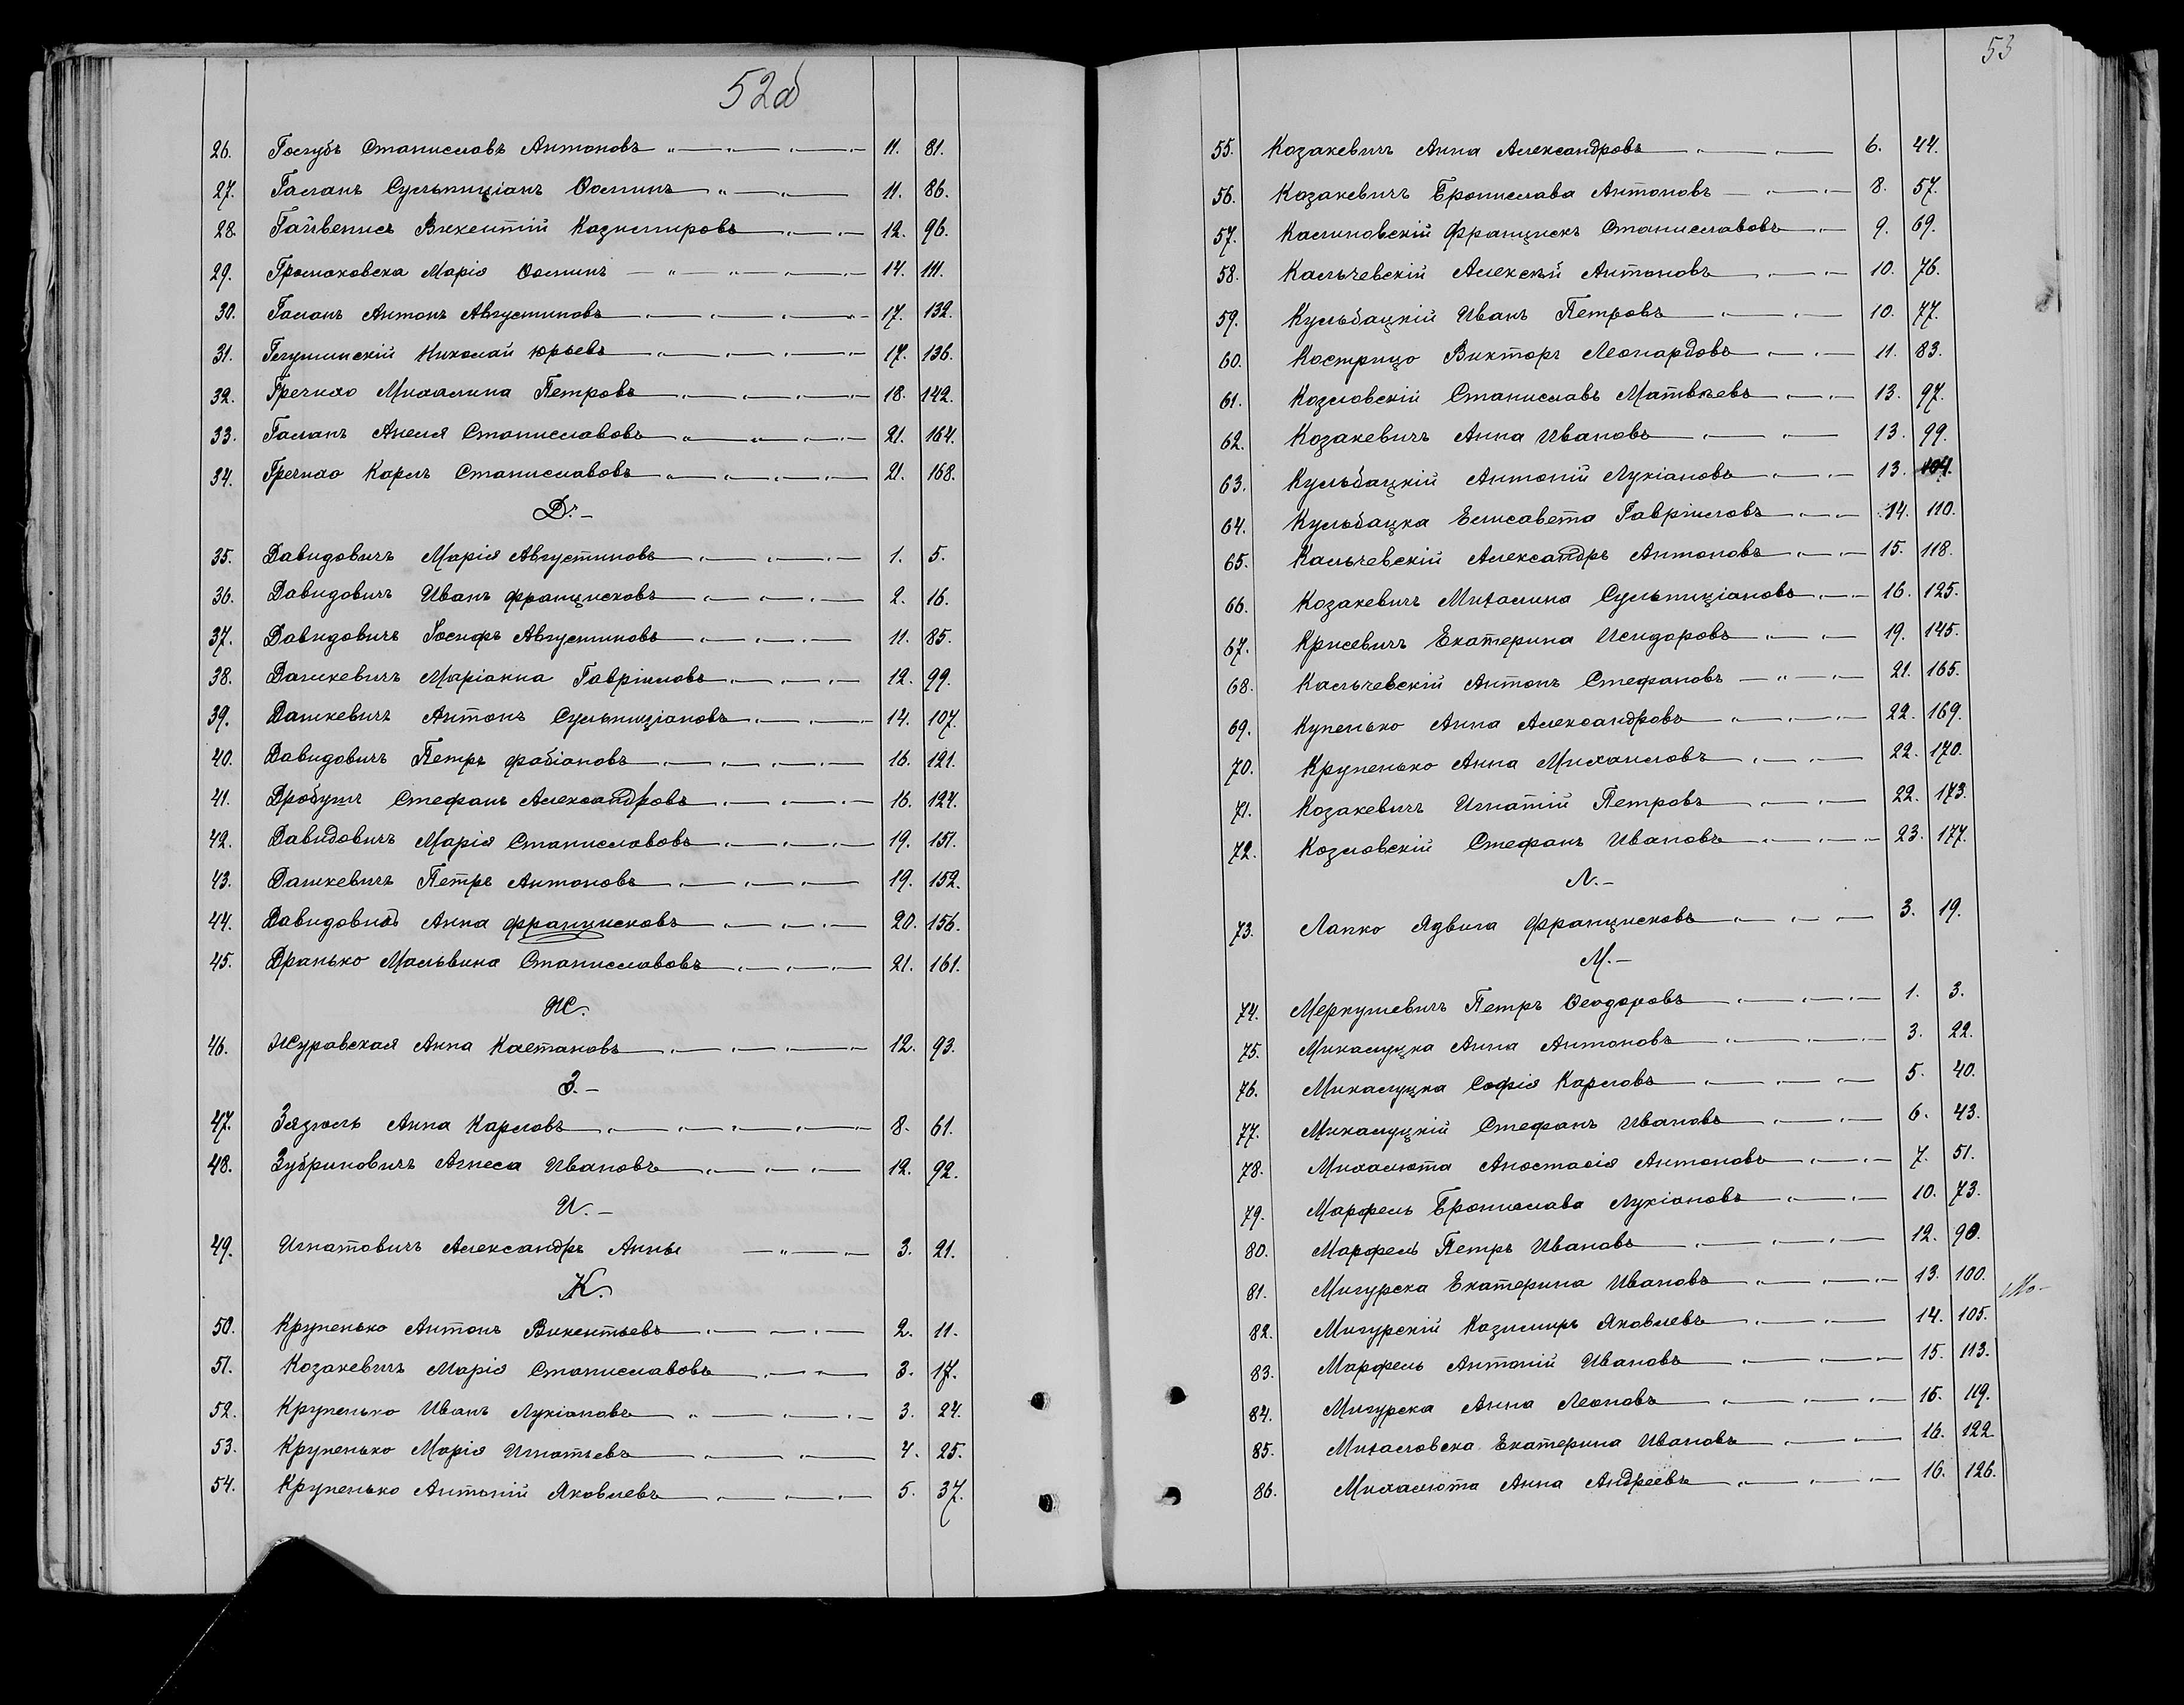 52об
26. Голубъ Станиславъ Антоновъ 11. 81.
27. Галанъ Сульпиціанъ Ѳоминъ 11. 86.
28. Гайвенисъ Викентій Казимировъ 12. 96.
29. Громаковска Марія Ѳоминъ 14. 111.
30. Галанъ Антонъ Августиновъ 17. 132.
31. Глушинскій Николай Юрьевъ 17. 136.
32. Гречихо Михалина Петровъ 18. 142.
33. Галанъ Анеля Станиславовъ 21. 164.
34. Гречихо Карлъ Станиславовъ 21. 168.
Д.
35. Давидовичъ Марія Августиновъ 1. 5.
36. Давидовичъ Иванъ Францисковъ 2. 16.
37. Давидовичъ Іосифъ Августиновъ 11. 85.
38. Дашкевичъ Маріанна Гавріиловъ 12. 99.
39. Дашкевичъ Антонъ Сульпиціановъ 14. 107.
40. Давидовичъ Петръ Фабіановъ 16. 121.
41. Дробушъ Стефанъ Александровъ 16. 124.
42. Давидовичъ Марія Станиславовъ 19. 151.
43. Дашкевичъ Петръ Антоновъ 19. 152.
44. Давидовичъ Анна Францисковъ 20. 156.
45. Дранько Мальвина Станиславовъ 21. 161.
Ж.
46. Журавская Анна Каетановъ 12. 93.
З.
47. Зязюль Анна Карловъ 8. 61.
48. Зубриновичъ Агнеса Ивановъ 12. 92.
И.
49. Игнатовичъ Александръ Анны 3. 21.
К.
50. Крупенько Антонъ Викентьевъ 2. 11.
51. Козакевичъ Марія Станиславовъ 3. 17.
52. Крупенько Иванъ Лукіановъ 3. 24.
53. Крупенько Марія Игнатьевъ 4. 25.
54. Крупенько Антоній Яковлевъ 5. 37.
53
55. Козакевичъ Анна Александровъ 6. 44.
56. Козакевичъ Брониславa Антоновъ 8. 57.
57. Калиновскій Францискъ Станиславовъ 9. 69.
58. Кальчевскій Алексѣй Антоновъ 10. 76.
59. Кульбацкій Иванъ Петровъ 10. 77.
60. Кострицо Викторъ Леонардовъ 11. 83.
61. Козловскій Станиславъ Матвѣевъ 13. 97.
62. Козакевичъ Анна Ивановъ 13. 99.
63. Кульбацкій Антоній Лукіановъ 13. 104.
64. Кульбацка Елисавета Гавріиловъ 14. 110.
65. Кальчевскій Александръ Антоновъ 15. 118.
66. Козакевичъ Михалина Сульпиціановъ 16. 125.
67. Крисевичъ Екатерина Исидоровъ 19. 145.
68. Кальчевскій Антонъ Стефановъ 21. 165.
69. Купенько Анна Александровъ 22. 169.
70. Крупенько Анна Михаиловъ 22. 170.
71. Козакевичъ Игнатій Петровъ 22. 173.
72. Козловскій Стефанъ Ивановъ 23. 177.
Л.
73. Лапко Ядвига Францисковъ 3. 19.
М.
74. Меркушевичъ Петръ Ѳеодоровъ 1. 3.
75. Микалуцка Анна Антоновъ 3. 22.
76. Микалуцка Софія Карловъ 5. 40.
77. Микалуцкій Стефанъ Ивановъ 6. 43.
78. Михалюта Анастасія Антоновъ 7. 51.
79. Марфель Бронислава Лукіановъ 10. 73.
80. Марфель Петръ Ивановъ 12. 90.
81. Мигурска Екатерина Ивановъ 13. 100.
82. Мигурскій Казимиръ Яковлевъ 14. 105.
83. Марфель Антоній Ивановъ 15. 113.
84. Мигурска Анна Леоновъ 15. 119.
85. Михаловска Екатерина Ивановъ 16. 122.
86. Михалюта Анна Андреевъ 16. 126.